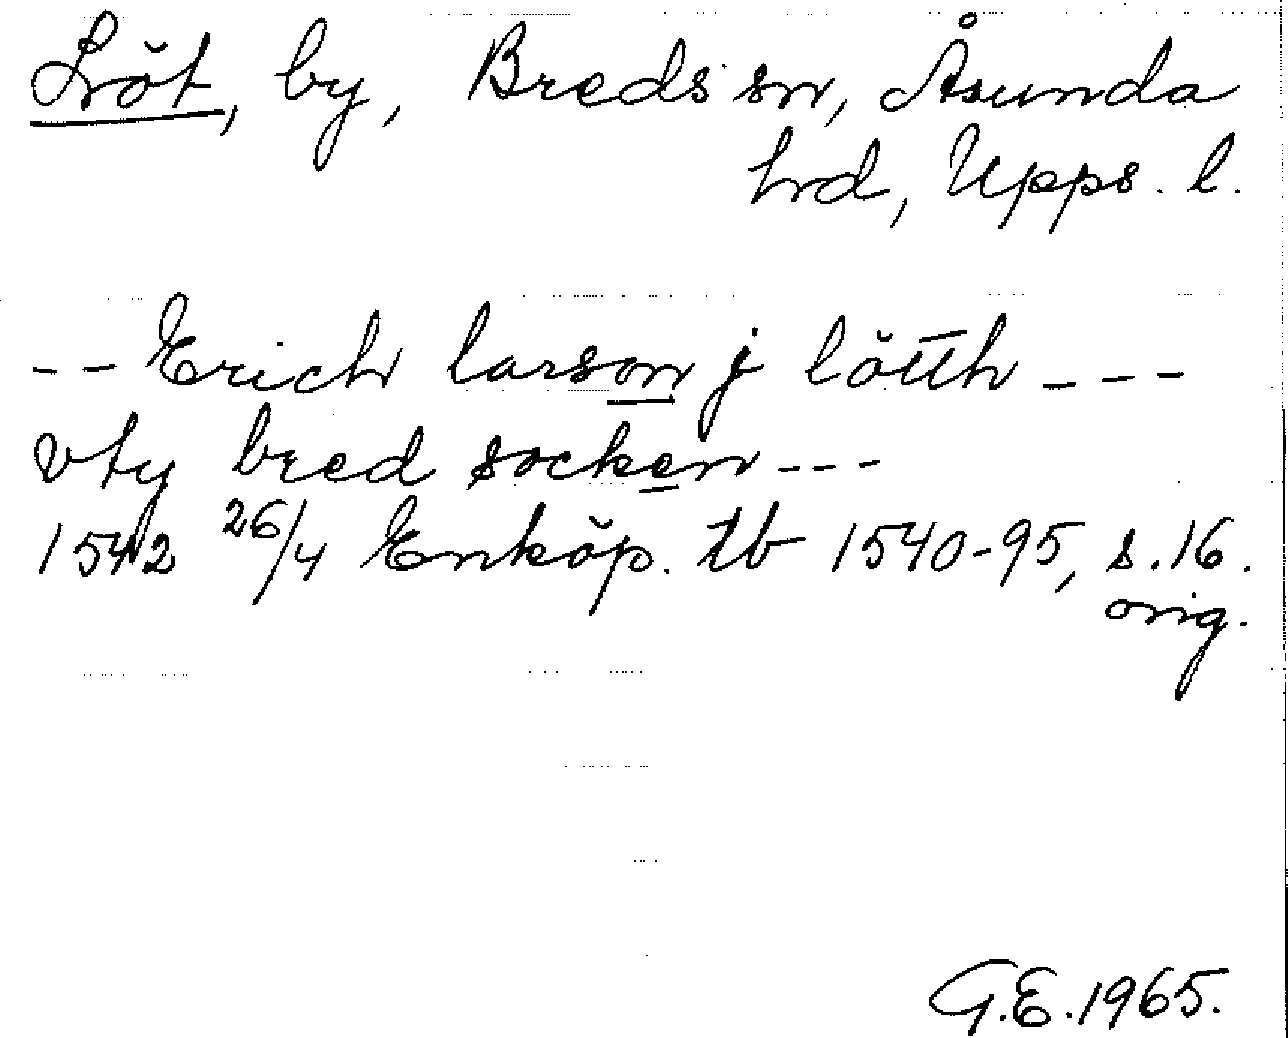 Löt, by, Breds sn, Åsunda
hrd, Upps. l.
-- Erich larson j lötth ---
vty bred socken ---
1542 26/4 Enköp. tb 1540-95, s. 16.
orig.
G.E. 1965.